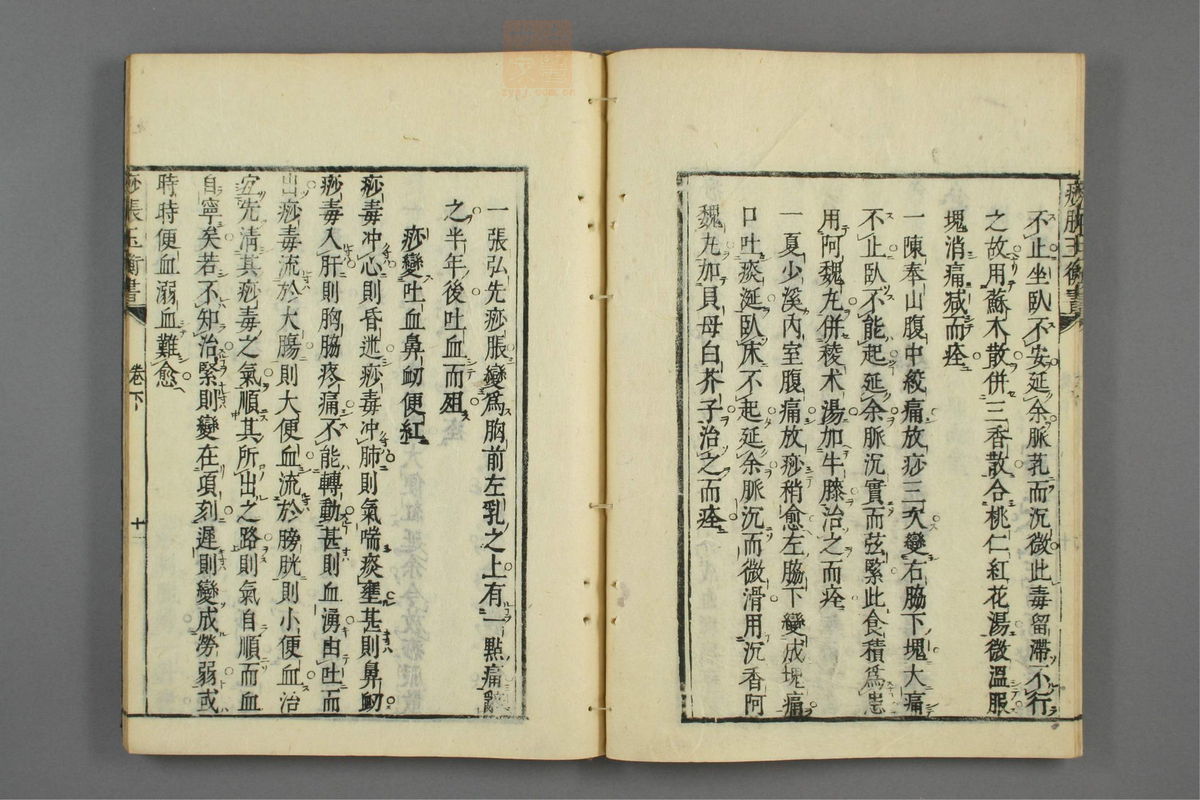 不止坐臥不安延余脈芤而沉微此毒留滯不行
之故用蘇木散併三香散合桃仁紅花湯微溫服
塊消痛減而痊
一陳奉山腹中絞痛放痧三次變右脇下塊大痛
不止臥不能起延余脈沉實而弦緊此食積為患
用阿魏丸併稜朮湯加牛膝治之而痊
一夏少溪內室腹痛放痧稍愈左脇下變成塊痛
口吐痰涎臥床不起延余脈沉而微滑用沉香阿
魏丸加貝母白芥子治之而痊
一張弘先痧脹變為胸前左乳之上有一點痛
之半年後吐血而殂
痧變吐血鼻衂便紅
痧毒冲心則昏迷痧毒冲肺則氣喘痰壅甚則鼻衂
痧毒入肝則胸脇疼痛不能轉動甚則血湧由吐而
出痧毒流於大腸則大便血流於膀胱則小便血治
宜先清其痧毒之氣順其所出之路則氣自順而血
自寧矣若不知治緊則變在項刻遲則變成勞弱或
時時便血溺血難愈
痧脹玉衡書
卷下
十一